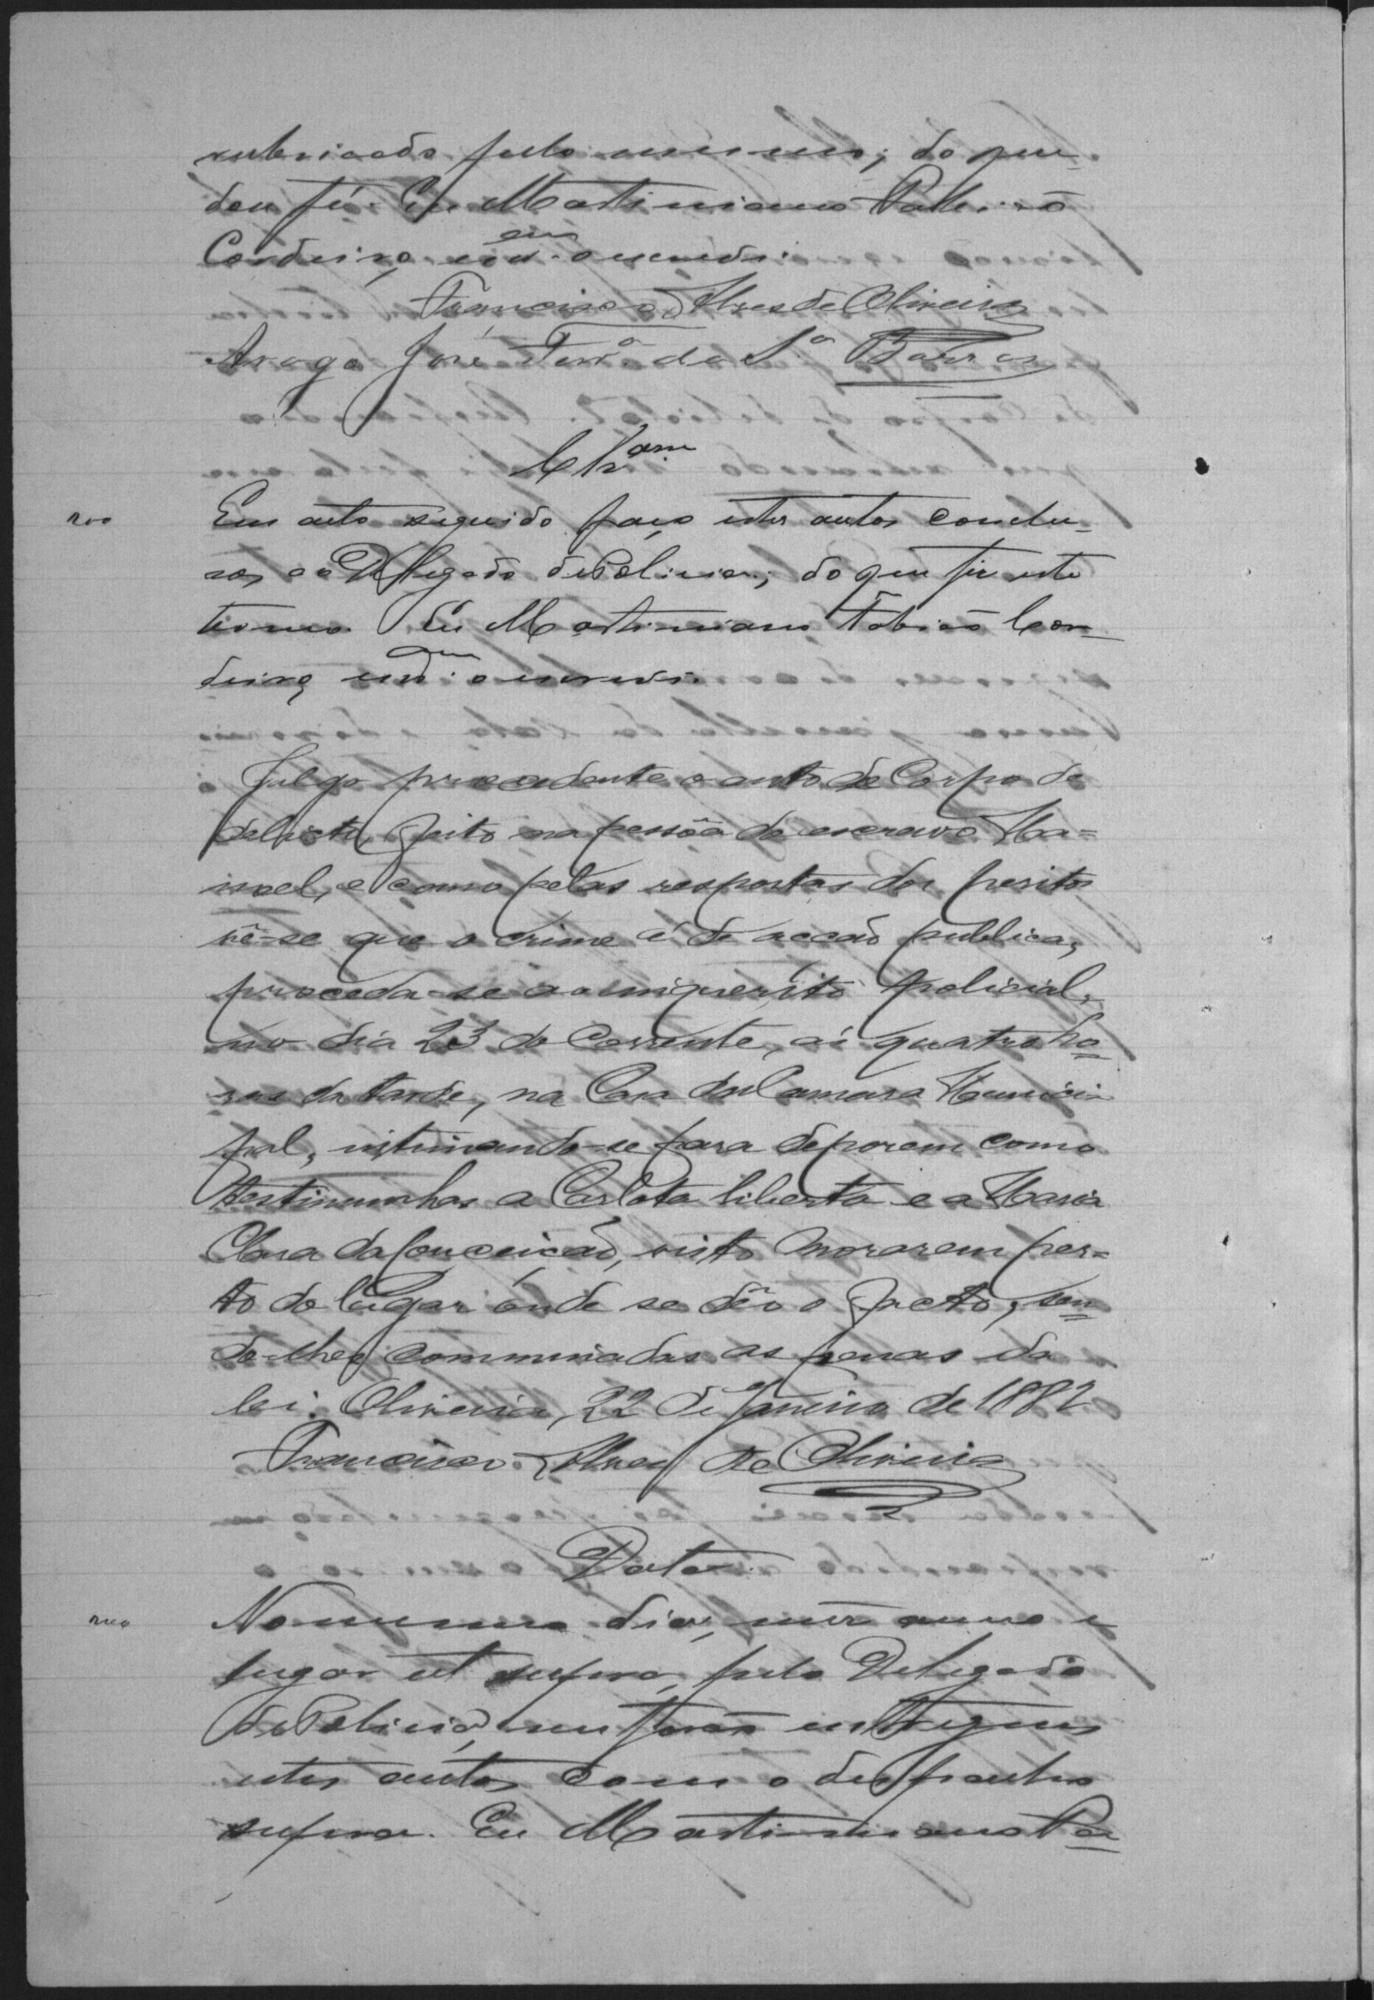 rubricado pelo mesmo; do que
dou fé. Eu Martiniano
Cordeiro, escam o escrevi.
Francisco Alves de Oliveira
A rogo José Ferrª da Sª Barros
Clsam
Em acto seguido faço estes autos conclu-
sos ao Delegado de Policia; do que fiz este
termo. Eu Martiniano Tobias Cor-
deiro, escam o escrevi.
Julgo procedente o auto de Corpo de
delicto, feito na pessôa do escravo Ma-
noel, e como pelas respostas dos peritos
vê-se que o crime é de acção publica,
proceda-se ao inquerito policial,
no dia 23 do corrente, ás quatro ho-
ras da tarde, na Casa da Camara Munici-
pal, intimando-se para deporem como
testimunhas a Carlota liberta e a Maria
Clara da Conceição, visto morarem per-
to do lugar onde se dêo o facto, sen-
do-lhes comminadas as penas da
lei. Oliveira, 22 de Janeiro de 1882
Francisco Alves de Oliveira
Data
No mesmo dia, mez anno e
lugar ut supra, pelo Delegado
de Policia, me forão entregues
estes autos com o despacho
supra. Eu Martiniano